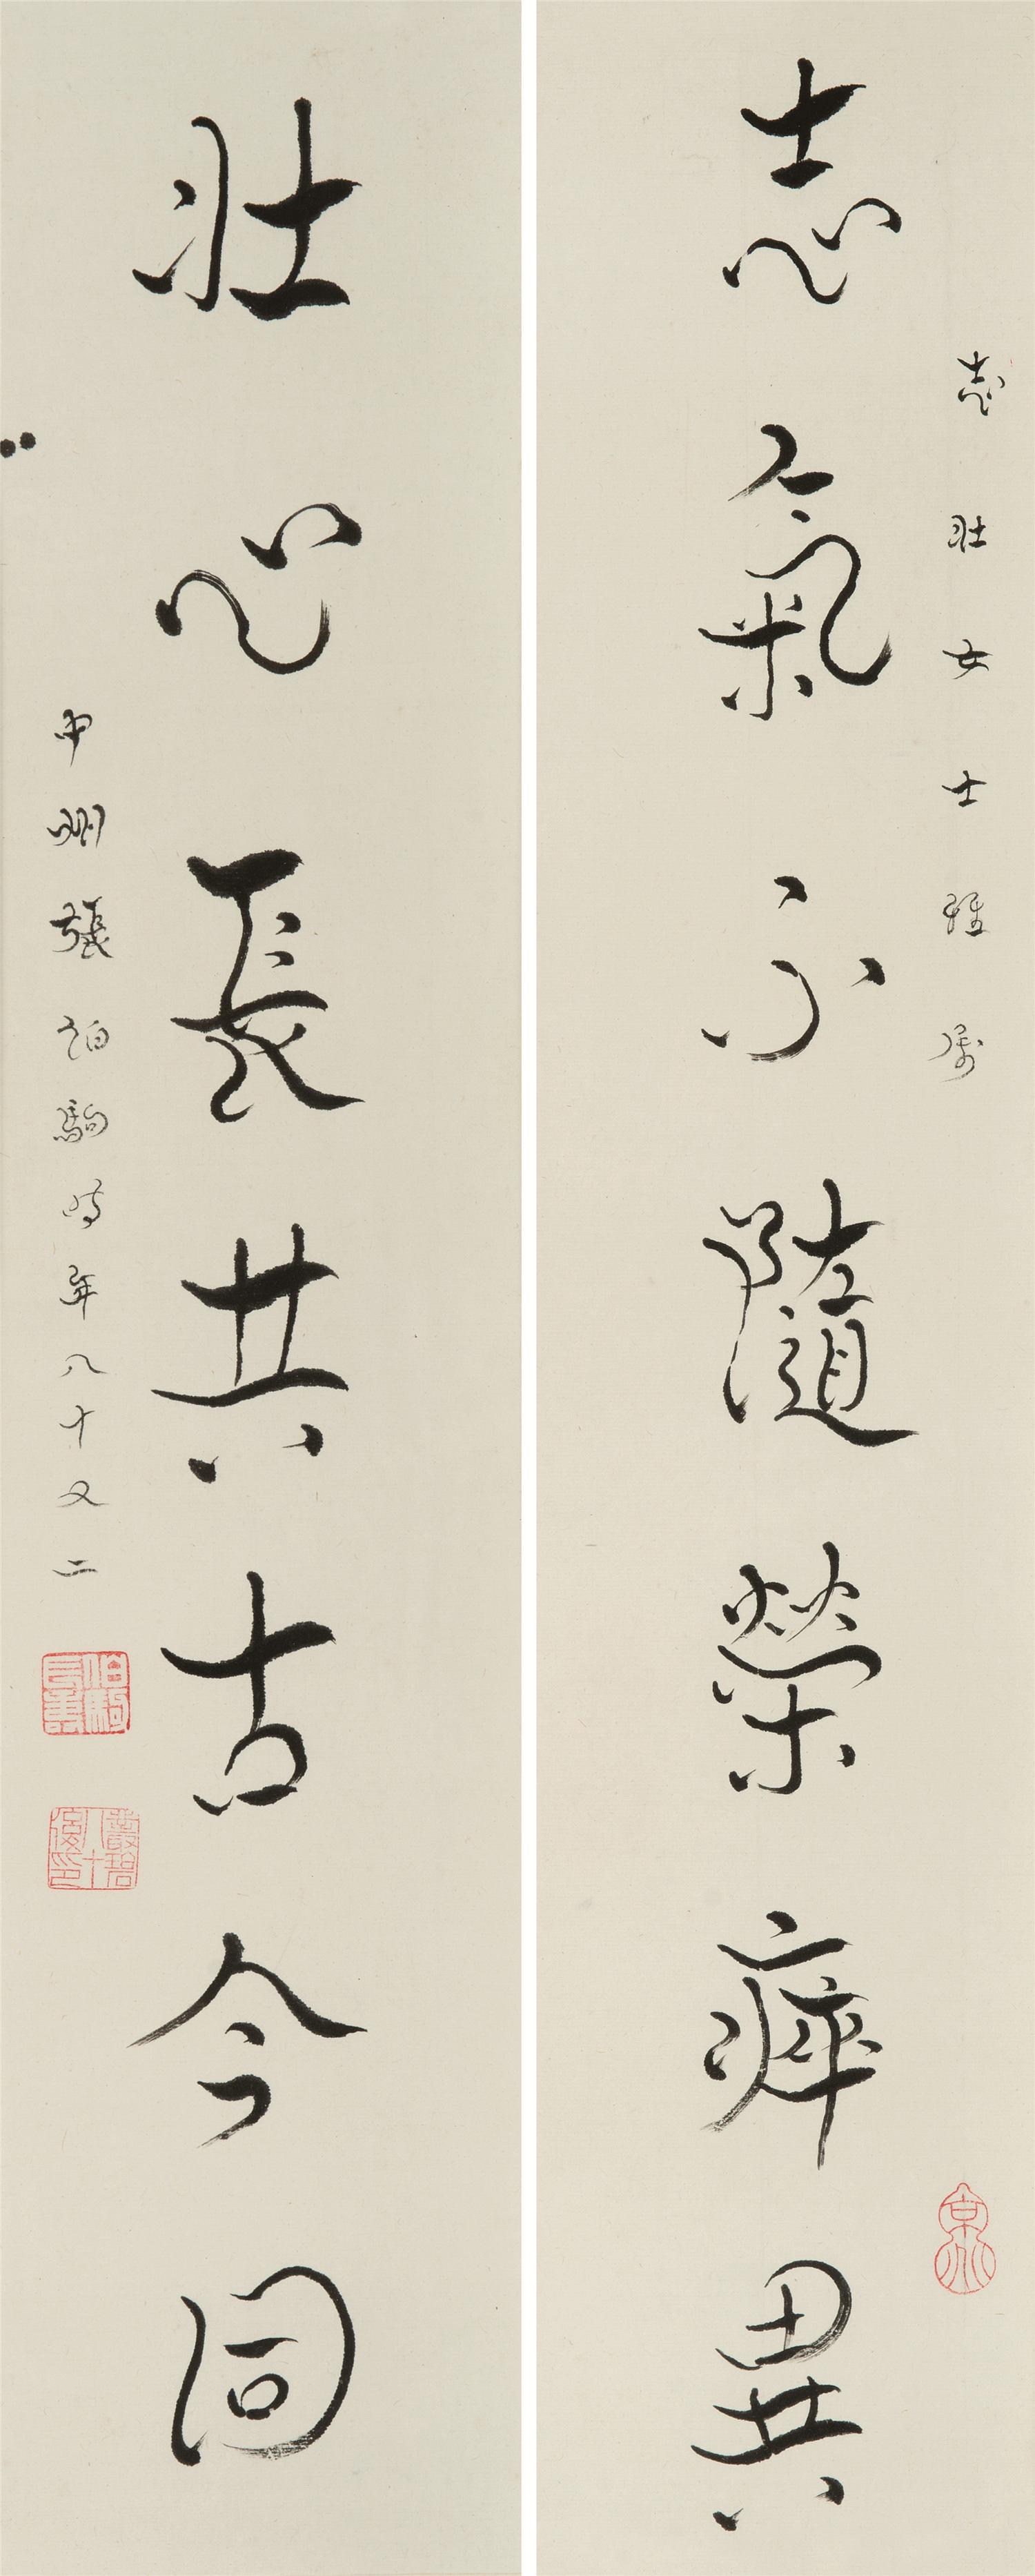 志壯女士雅屬
志氣不隨榮瘁異
京兆
壯心長共古今同
中州張伯駒時年八十又二
伯駒長壽
叢碧八十後印